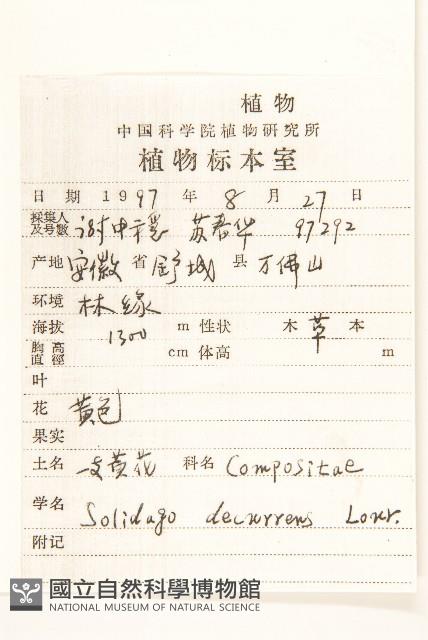 植物
中国科学院植物研究所
植物标本室
日期 1997 年 8 月 27 日
採集人及号數 谢中稳 苏春华 97292
产地 安徽 省 舒城 县 万佛山
环境 林缘
海拔 1300 m 性状 木 草 本
胸高直徑 cm 体高 m
叶
花 黄色
果实
土名 一支黄花 科名 Compositae
学名 Solidago decurrens Lour.
附记
國立自然科學博物館
NATIONAL MUSEUM OF NATURAL SCIENCE